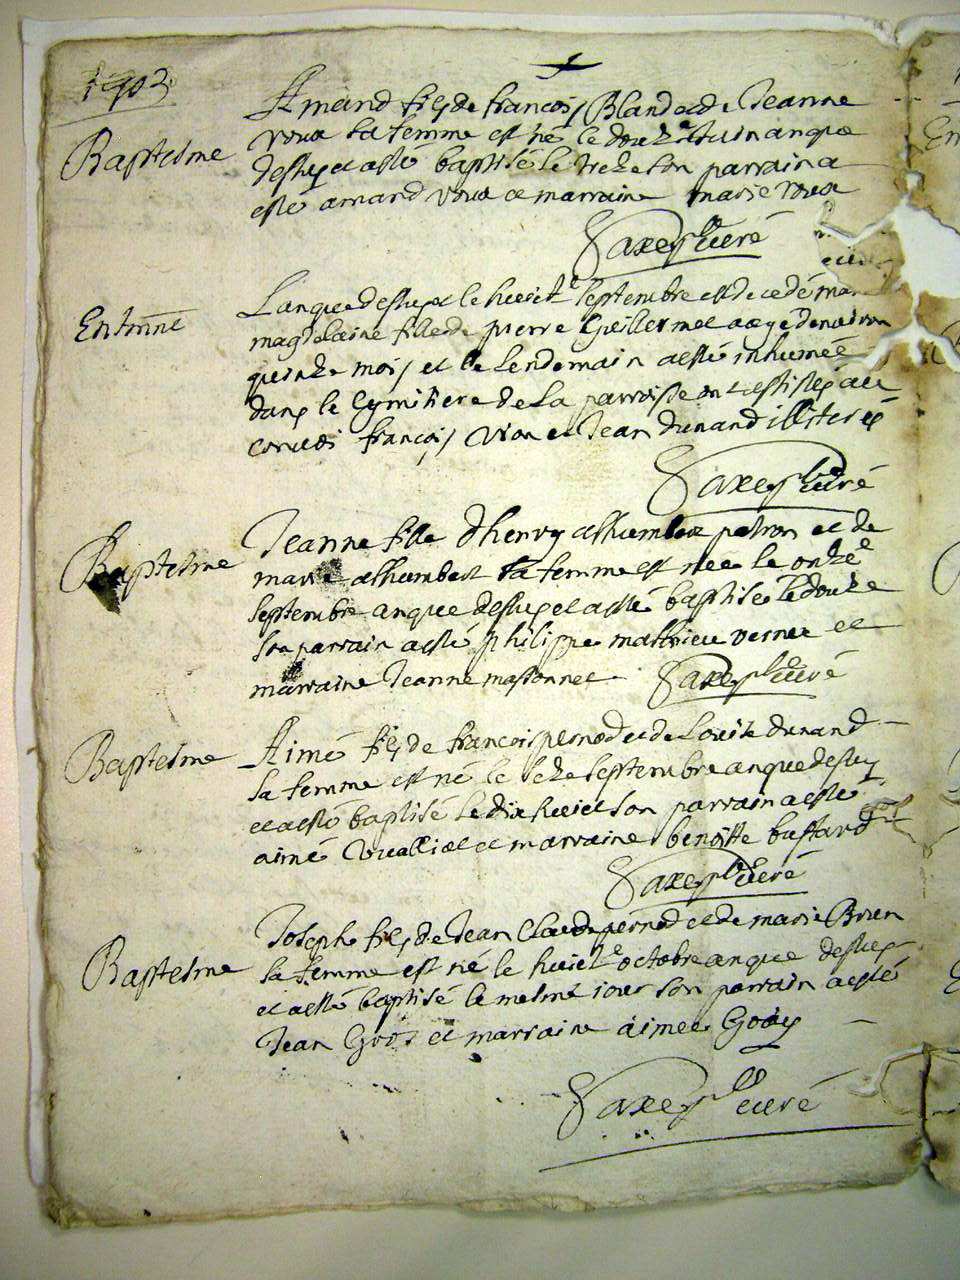 1702
Baptesme
Amand fils de francois Bland et de Jeanne
voux sa femme est né le douze Juin anque
dessus et a esté baptisé le treze son parrain a
esté amand voux et marraine marie voux
Saxe curé
Enterrme
L'anque dessus et le huict septembre est decedé mar
magdelaine fille de pierre Guillermet aagé denviron
quinze mois et le lendemain a esté inhumée
dans le Cymitiere de la parroisse
convoi francois Vion et Jean Dunand illiterés
Saxe curé
Baptesme
Jeanne fille d'henry athumbert patron et de
marie athumbert sa femme est née le onze
septembre anque dessus et a esté baptisée le douze
son parrain a esté philippe mathieu vernet et
marraine Jeanne massonnet Saxe curé
Baptesme
Aimé fils de francois pernod et de Louise dunand
sa femme est né le seze septembre anque dessus
et a esté baptisé le dix huict son parrain a esté
aimé vualliet et marraine benoitte bastard
Saxe curé
Baptesme
Joseph fils de Jean Claude pernod et de marie Brun
sa femme est né le huict octobre anque dessus
et a esté baptisé le mesme iour son parrain a esté
Jean Gros et marraine aimee Goay
Saxe curé